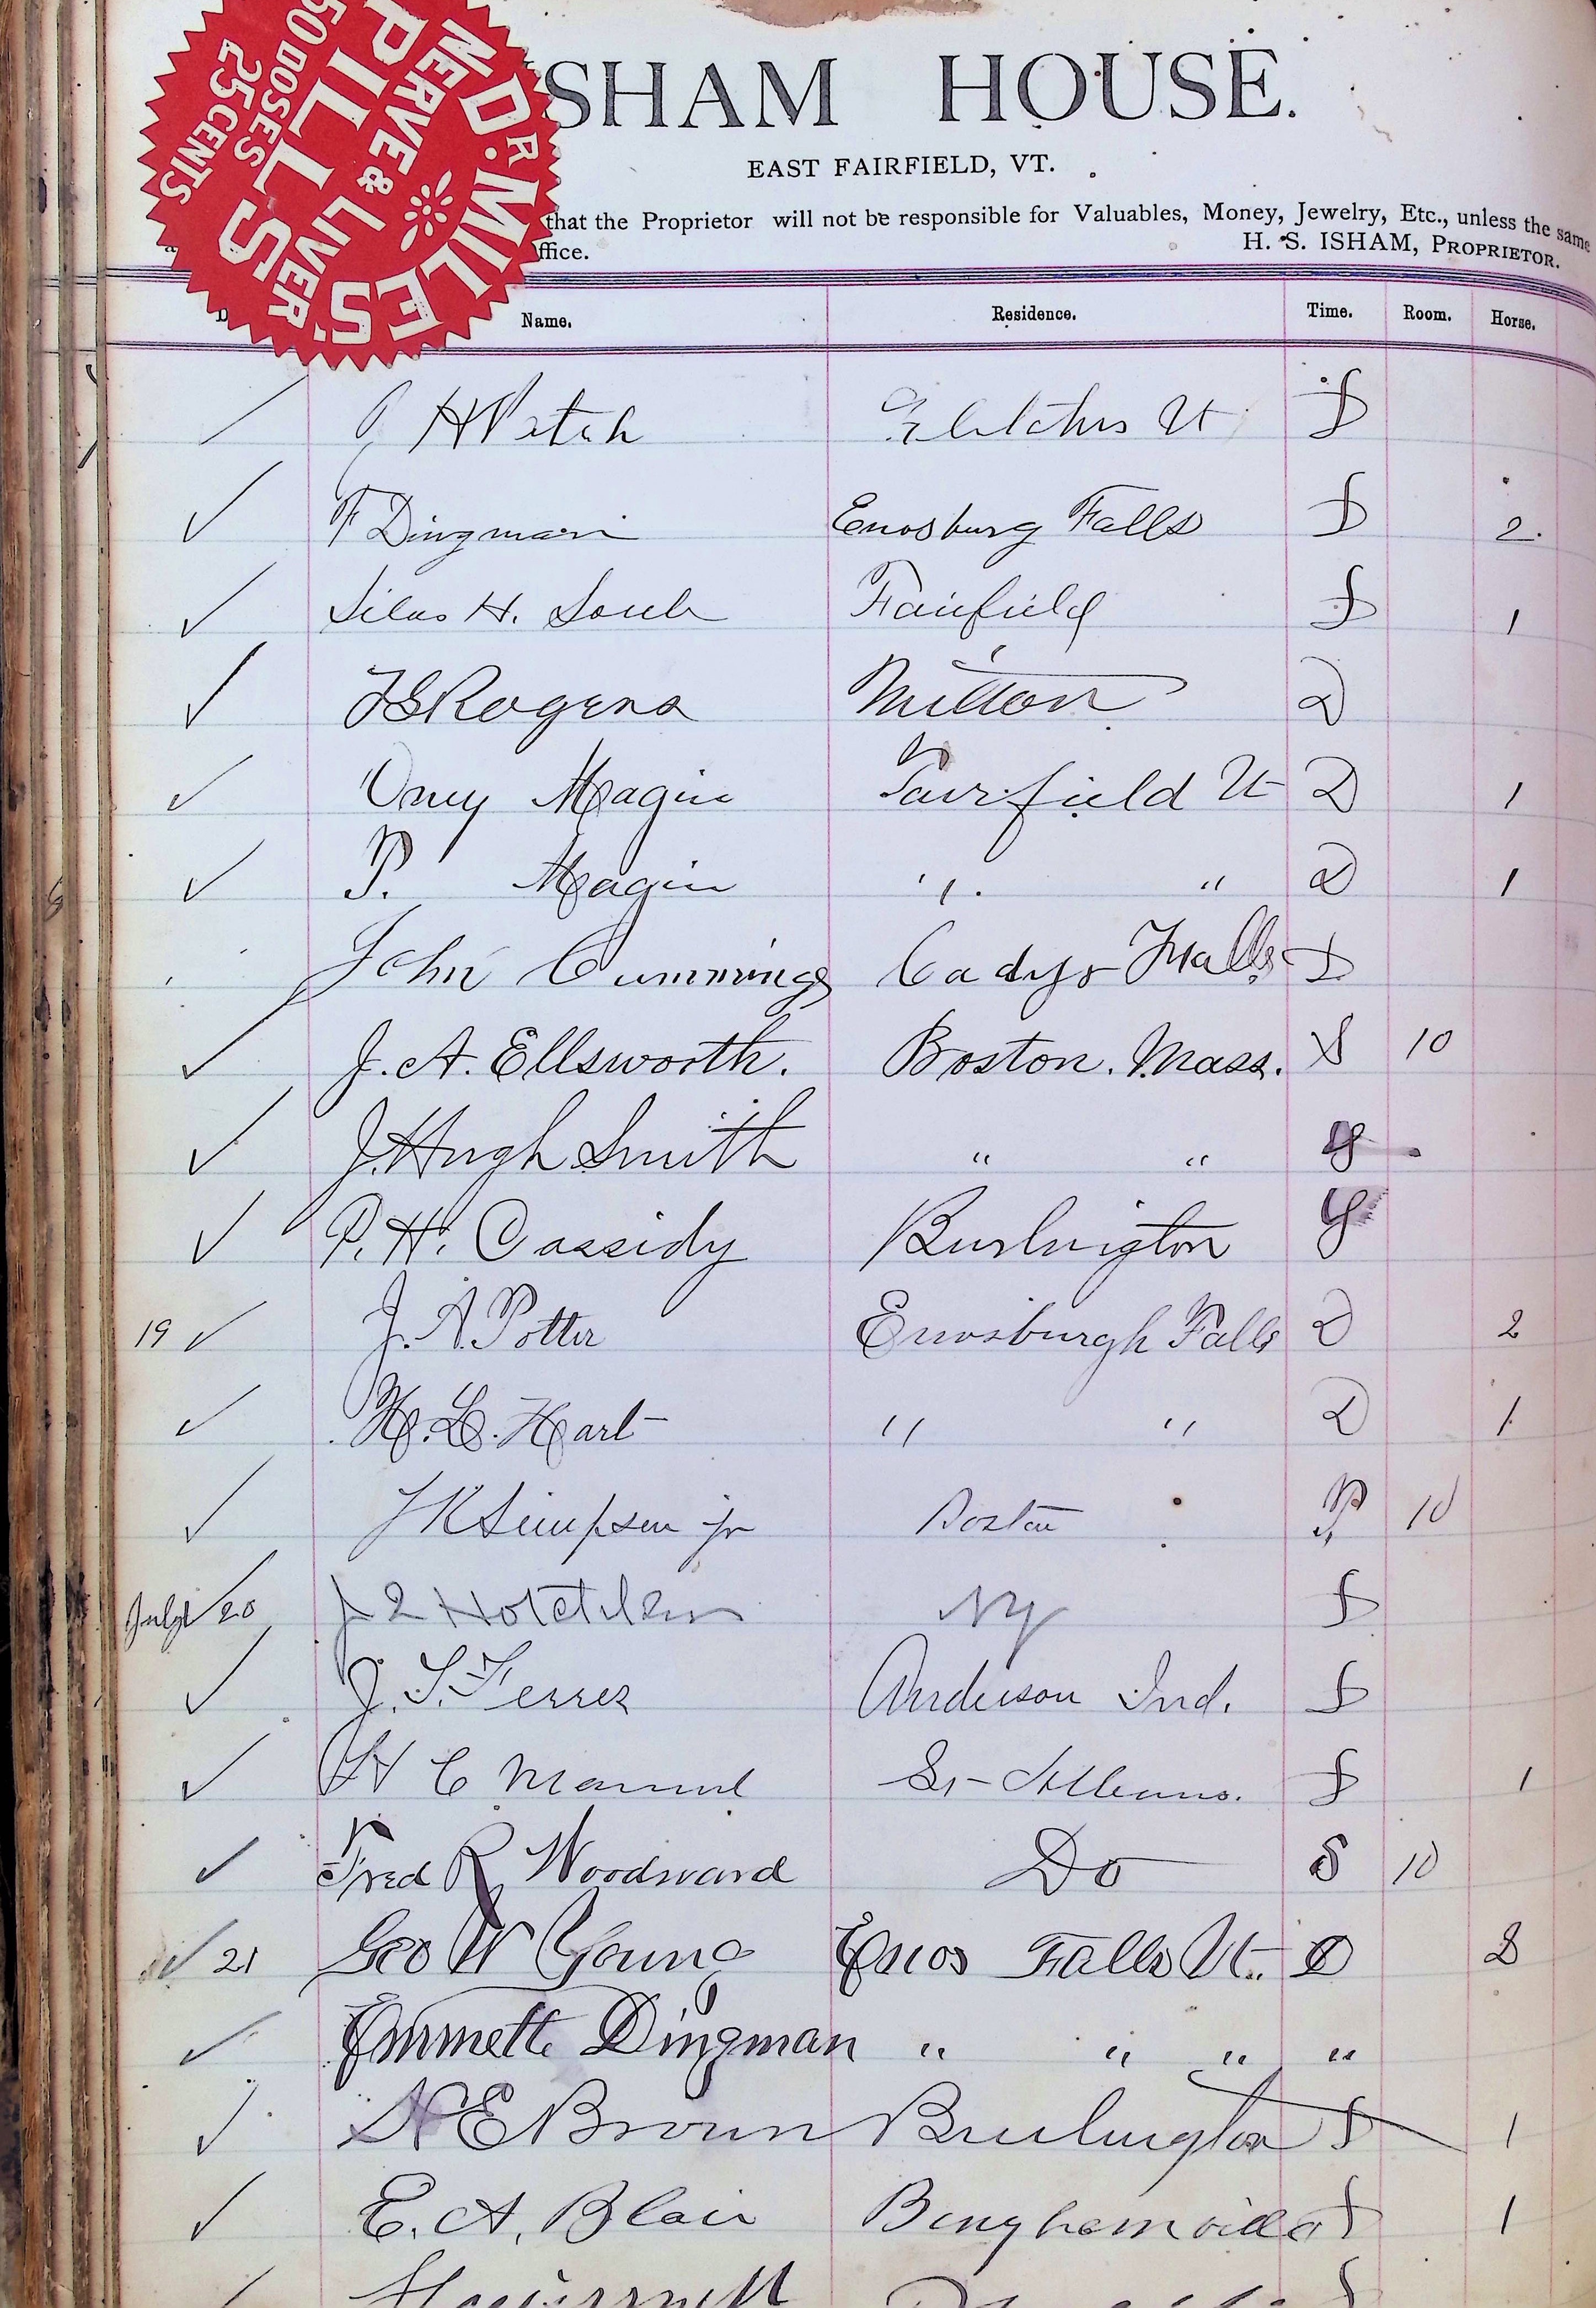 DR. MILES'
NERVE & LIVER
PILLS
50 DOSES
25 CENTS
SHAM HOUSE.
EAST FAIRFIELD, VT.
that the Proprietor will not be responsible for Valuables, Money, Jewelry, Etc., unless the same
ffice. H. S. ISHAM, PROPRIETOR.
Name. Residence. Time. Room. Horse.
H Patch Vt
F Dingman Enosburg Falls D 2.
Silas H. Soule Fairfield 1
Rogers Milton D
Magin Fairfield Vt D 1
P. Magin " " D 1
John Cummings Cadys Falls D
J. A. Ellsworth. Boston. Mass. S 10
J. Hugh Smith " "
P. H. Cassidy Burlington
19 J. A. Potter Enosburgh Falls D 2
H. L. Hart " " D 1
Simpson jr Boston 10
July 20 NY
J. S. Ferrer Anderson Ind.
H C St Albans. 1
Fred R Woodward Do S 10
21 Geo W Young Enos Falls Vt. D 2
Emmett Dingman " " " "
E Brown Burlington 1
E. A. Blair 1